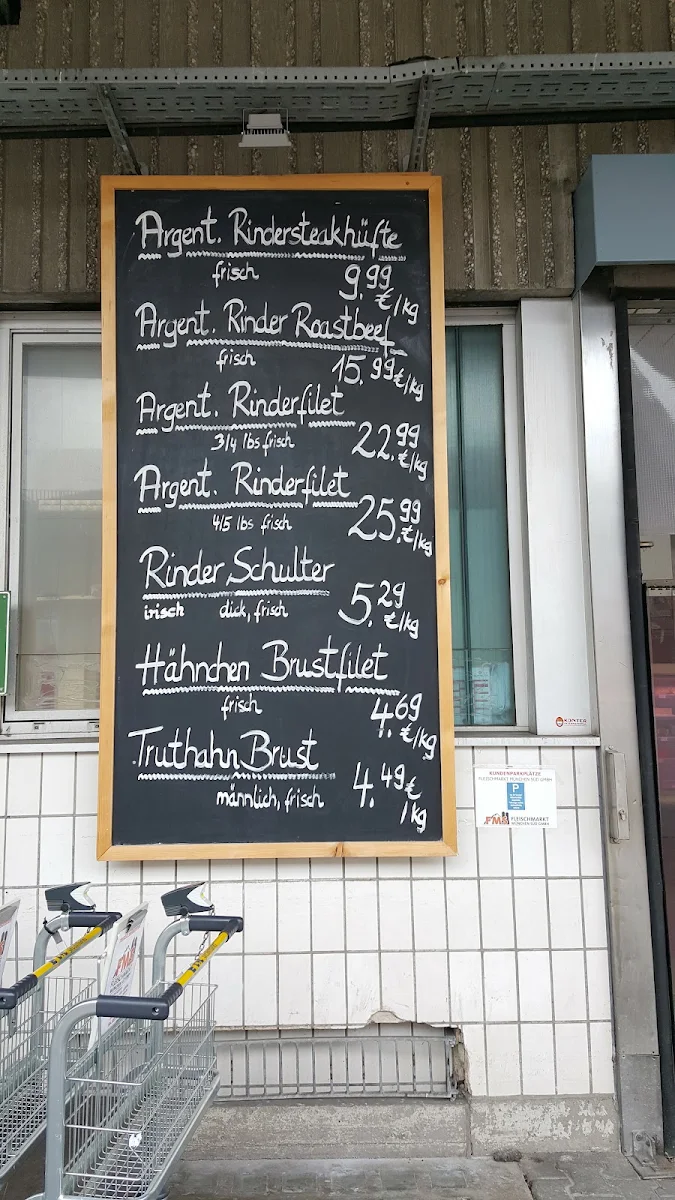 Argent. Rindersteakhüfte
frisch 9.99 €/kg
Argent. Rinder Roastbeef
frisch 15.99 €/kg
Argent. Rinderfilet
3/4 lbs frisch 22.99 €/kg
Argent. Rinderfilet
4/5 lbs frisch 25.99 €/kg
Rinder Schulter
irisch dick, frisch 5.29 €/kg
Hähnchen Brustfilet
frisch 4.69 €/kg
Truthahn Brust
männlich, frisch 4.49 € /kg
KUNDENPARKPLÄTZE
FLEISCHMARKT MÜNCHEN SÜD GMBH
P
FMS FLEISCHMARKT
MÜNCHEN SÜD GMBH
FMS